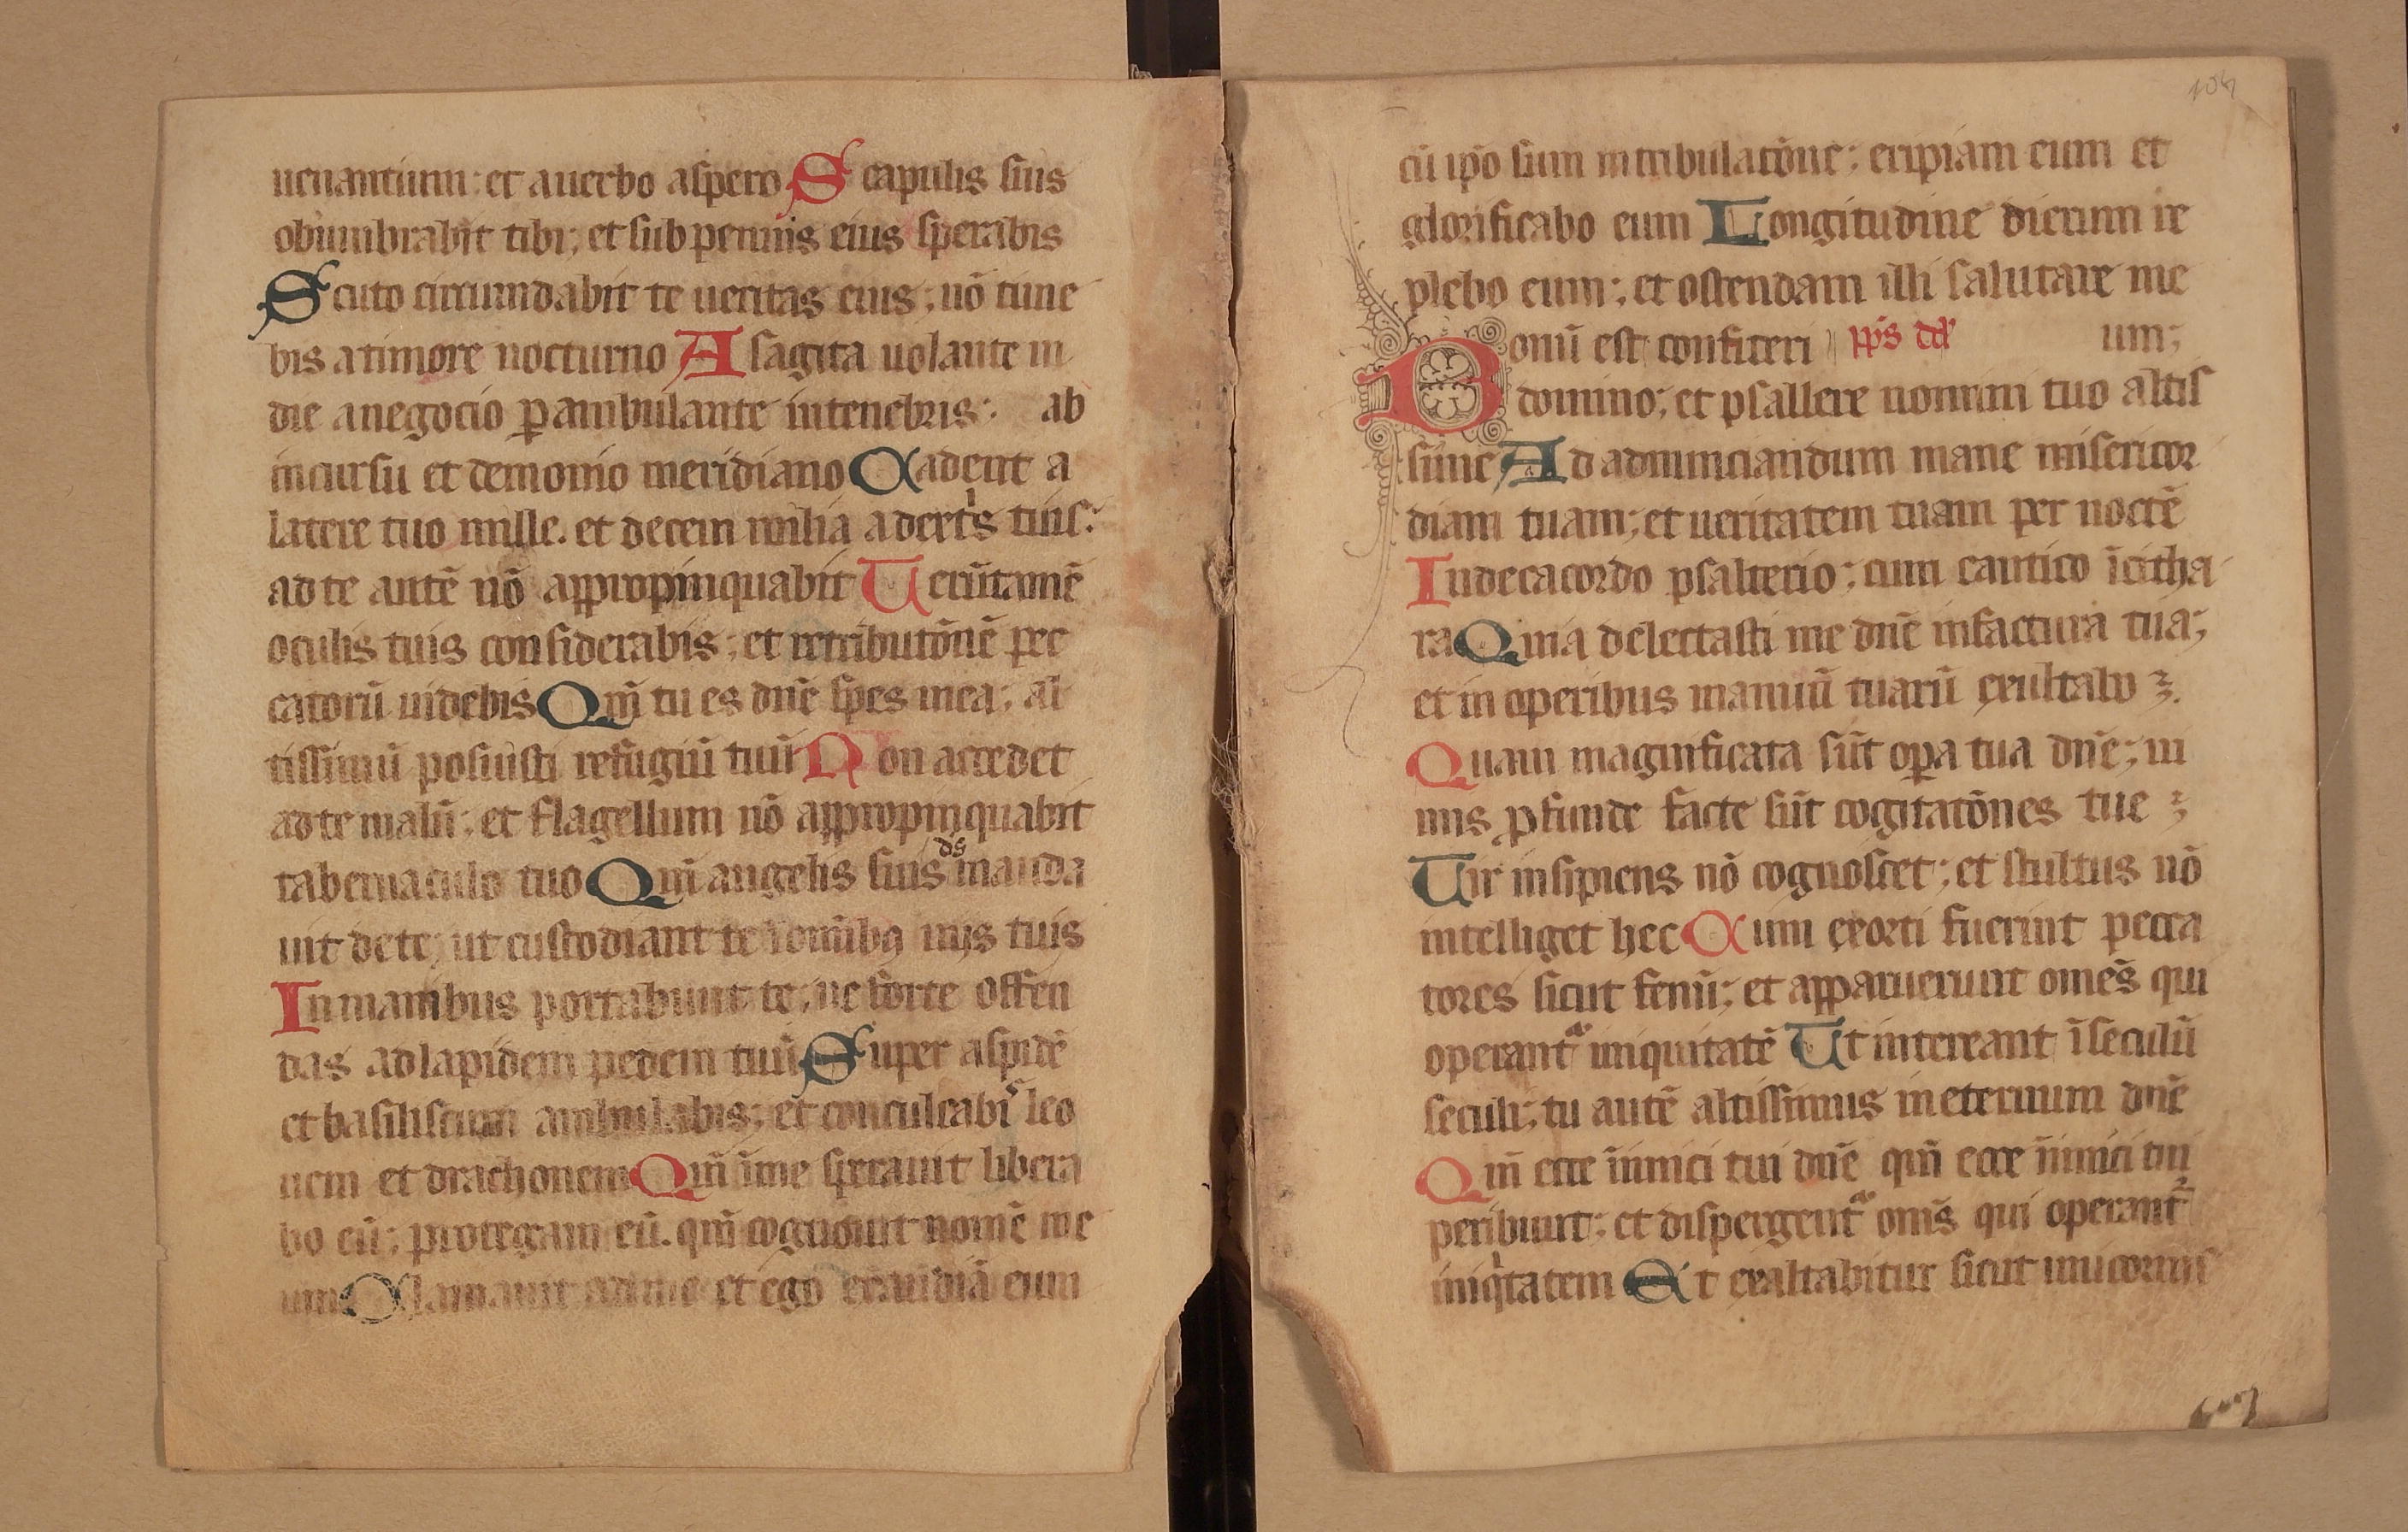 uenantium: et auerbo aspero Scapulis suis
obumbrabit tibi; et sub pennis eius sperabis
Scuto circumdabit te ueritas eius; nō time
bis atimore nocturno A sagita uolante in
die anegocio ꝑambulante intenebris: ab
incursu et demonio meridiano Cadent a
latere tuo mille. et decem milia adextͥs tuis:
ad te autē nō appropinquabit Uerūtamē
oculis tuis considerabis; et retributōnē pec
catorū uidebis Qm̄ tu es dn̄e spes mea; al
tissimū posuisti refugiū tuū Non accedet
adte malū; et flagellum nō appropinquabit
tabernaculo tuo Qm̄ angelis suis ds̄ manda
uit dete; ut custodiant te īomībꝯ uijs tuis
Inmanibus portabunt te; ne forte offen
das adlapidem pedem tuū Super aspidē
et basiliscum ambulabis; et conculcabis leo
nem et drachonem Qm̄ īme sperauit libera
bo eū; protegam eū. qm̄ cognouit nomē me
um Clamauit ad me et ego exaudiā eum
104
cū ip̄o sum intribulatōne; eripiam eum et
glorificabo eum Longitudine dierum re
plebo eum; et ostendam illi salutare me
Bonū est confiteri p̄s dd um;
domino; et psallere nomini tuo altis
sime Ad adnunciandum mane misericor
diam tuam; et ueritatem tuam per noctē
Indecacordo psalterio; cum cantico īcitha
ra Quia delectasti me dn̄e infactura tua;
et in operibus manuū tuarū exultabo ꝫ.
Quam magnificata sūt oꝑa tua dn̄e; ni
mis ꝓfunde facte sūt cogitatōnes tue ꝫ
Uir insipiens nō cognoscet; et stultus nō
intelliget hec Cum exorti fuerint pecca
tores sicut fenū; et apparuerunt omēs qui
operantᷣ iniquitatē Ut intereant īseculū
seculi; tu autē altissimus ineternum dn̄e
Qm̄ ecce īnimici tui dn̄e qm̄ ecce īnimici tui
peribunt; et dispergentᷣ omīs qui operantᷣ
iniqͥtatem Et exaltabitur sicut unicornis